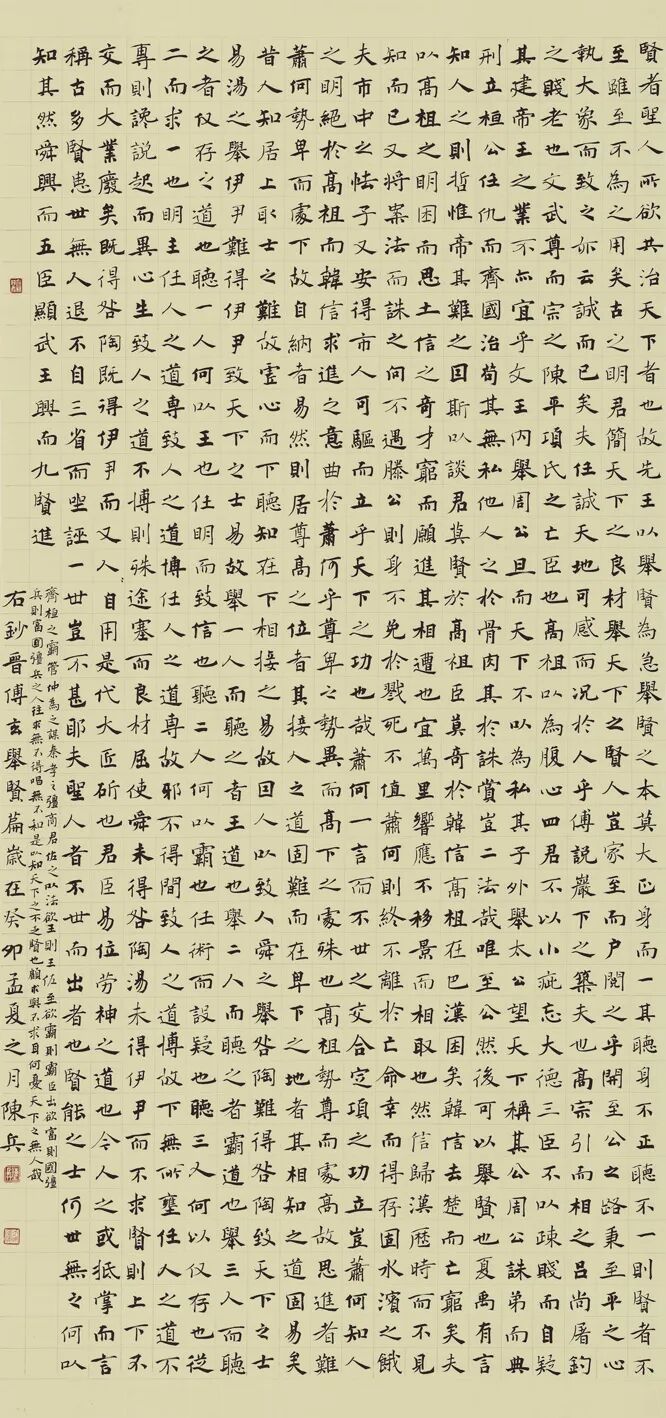 賢者聖人所欲共治天下者也故先王以舉賢為急舉賢之本莫大正身而一其聽身不正聽不一則賢者不
至雖至不為之用矣古之明君簡天下之良材舉天下之賢人豈家至而戶閱之乎開至公之路秉至平之心
執大象而致之亦云誠而已矣夫任誠天地可感而況於人乎傅說巖下之築夫也高宗引而相之呂尚屠釣
之賤老也文武尊而宗之陳平項氏之亡臣也高祖以為腹心四君不以小疵忘大德三臣不以疎賤而自疑
其建帝王之業不亦宜乎文王內舉周公旦而天下不以為私其子外舉太公望天下稱其公周公誅弟而典
刑立桓公任仇而齊國治苟其無私他人之於骨肉其於誅賞豈二法哉唯至公然後可以舉賢也夏禹有言
知人之則哲惟帝其難之因斯以談君莫賢於高祖臣莫奇於韓信高祖在巴漢困矣韓信去楚而亡窮矣夫
以高祖之明困而思士信之奇才窮而願進其相遭也宜萬里響應不移景而相取也然信歸漢歷時而不見
知而已又將案法而誅之向不遇滕公則身不免於戮死不值蕭何則終不離於亡命幸而得存固水濱之餓
夫市中之怯子又安得市人可驅而立乎天下之功也哉蕭何一言而不世之交合定項之功立豈蕭何知人
之明絕於高祖而韓信求進之意曲於蕭何乎尊卑之勢異而高下之處殊也高祖勢尊而處高故思進者難
蕭何勢卑而處下故自納者易然則居尊高之位者其接人之道固難而在卑下之地者其相知之道固易矣
昔人知居上取士之難故虛心而下聽知在下相接之易故因人以致人舜之舉咎陶難得咎陶致天下之士
易湯之舉伊尹難得伊尹致天下之士易故舉一人而聽之者王道也舉二人而聽之者霸道也舉三人而聽
之者仅存之道也聽一人何以王也任明而致信也聽二人何以霸也任術而設疑也聽三人何以仅存也從
二而求一也明主任人之道專致人之道博任人之道專故邪不得間致人之道博故下無所壅任人之道不
專則讒說起而異心生致人之道不博則殊途塞而良材屈使舜未得咎陶湯未得伊尹而不求賢則上下不
交而大業廢矣既得咎陶既得伊尹而又人自用是代大匠斫也君臣易位勞神之道也今人之或抵掌而言
稱古多賢患世無人退不自三省而坐誣一世豈不甚耶夫聖人者不世而出者也賢能之士何世無之何以
知其然舜興而五臣顯武王興而九賢進
齊桓之霸管仲為之謀秦孝之彊商君佐之以法欲王則王佐至欲霸則霸臣出欲富則國彊
兵則富國彊兵之人往求無不得唱無不和是以知天下之不乏賢也顧求與不求耳何憂天下之無人哉
右鈔晉傅玄舉賢篇歲在癸卯孟夏之月陳兵